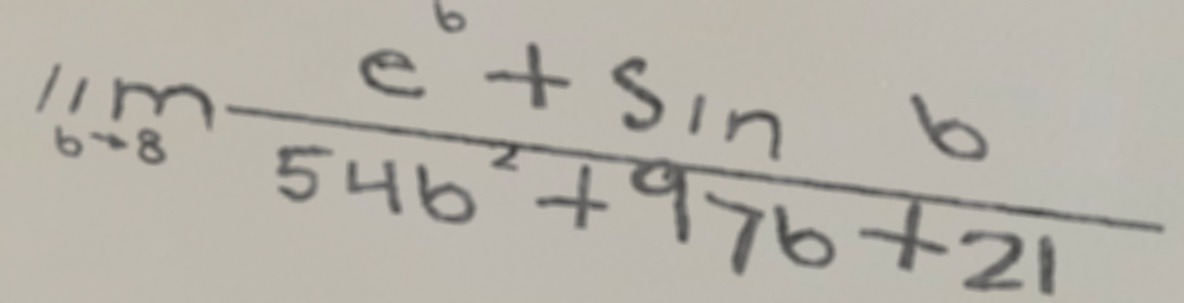 lim b→8 (e^b + sin b) / (54b² + 97b + 21)